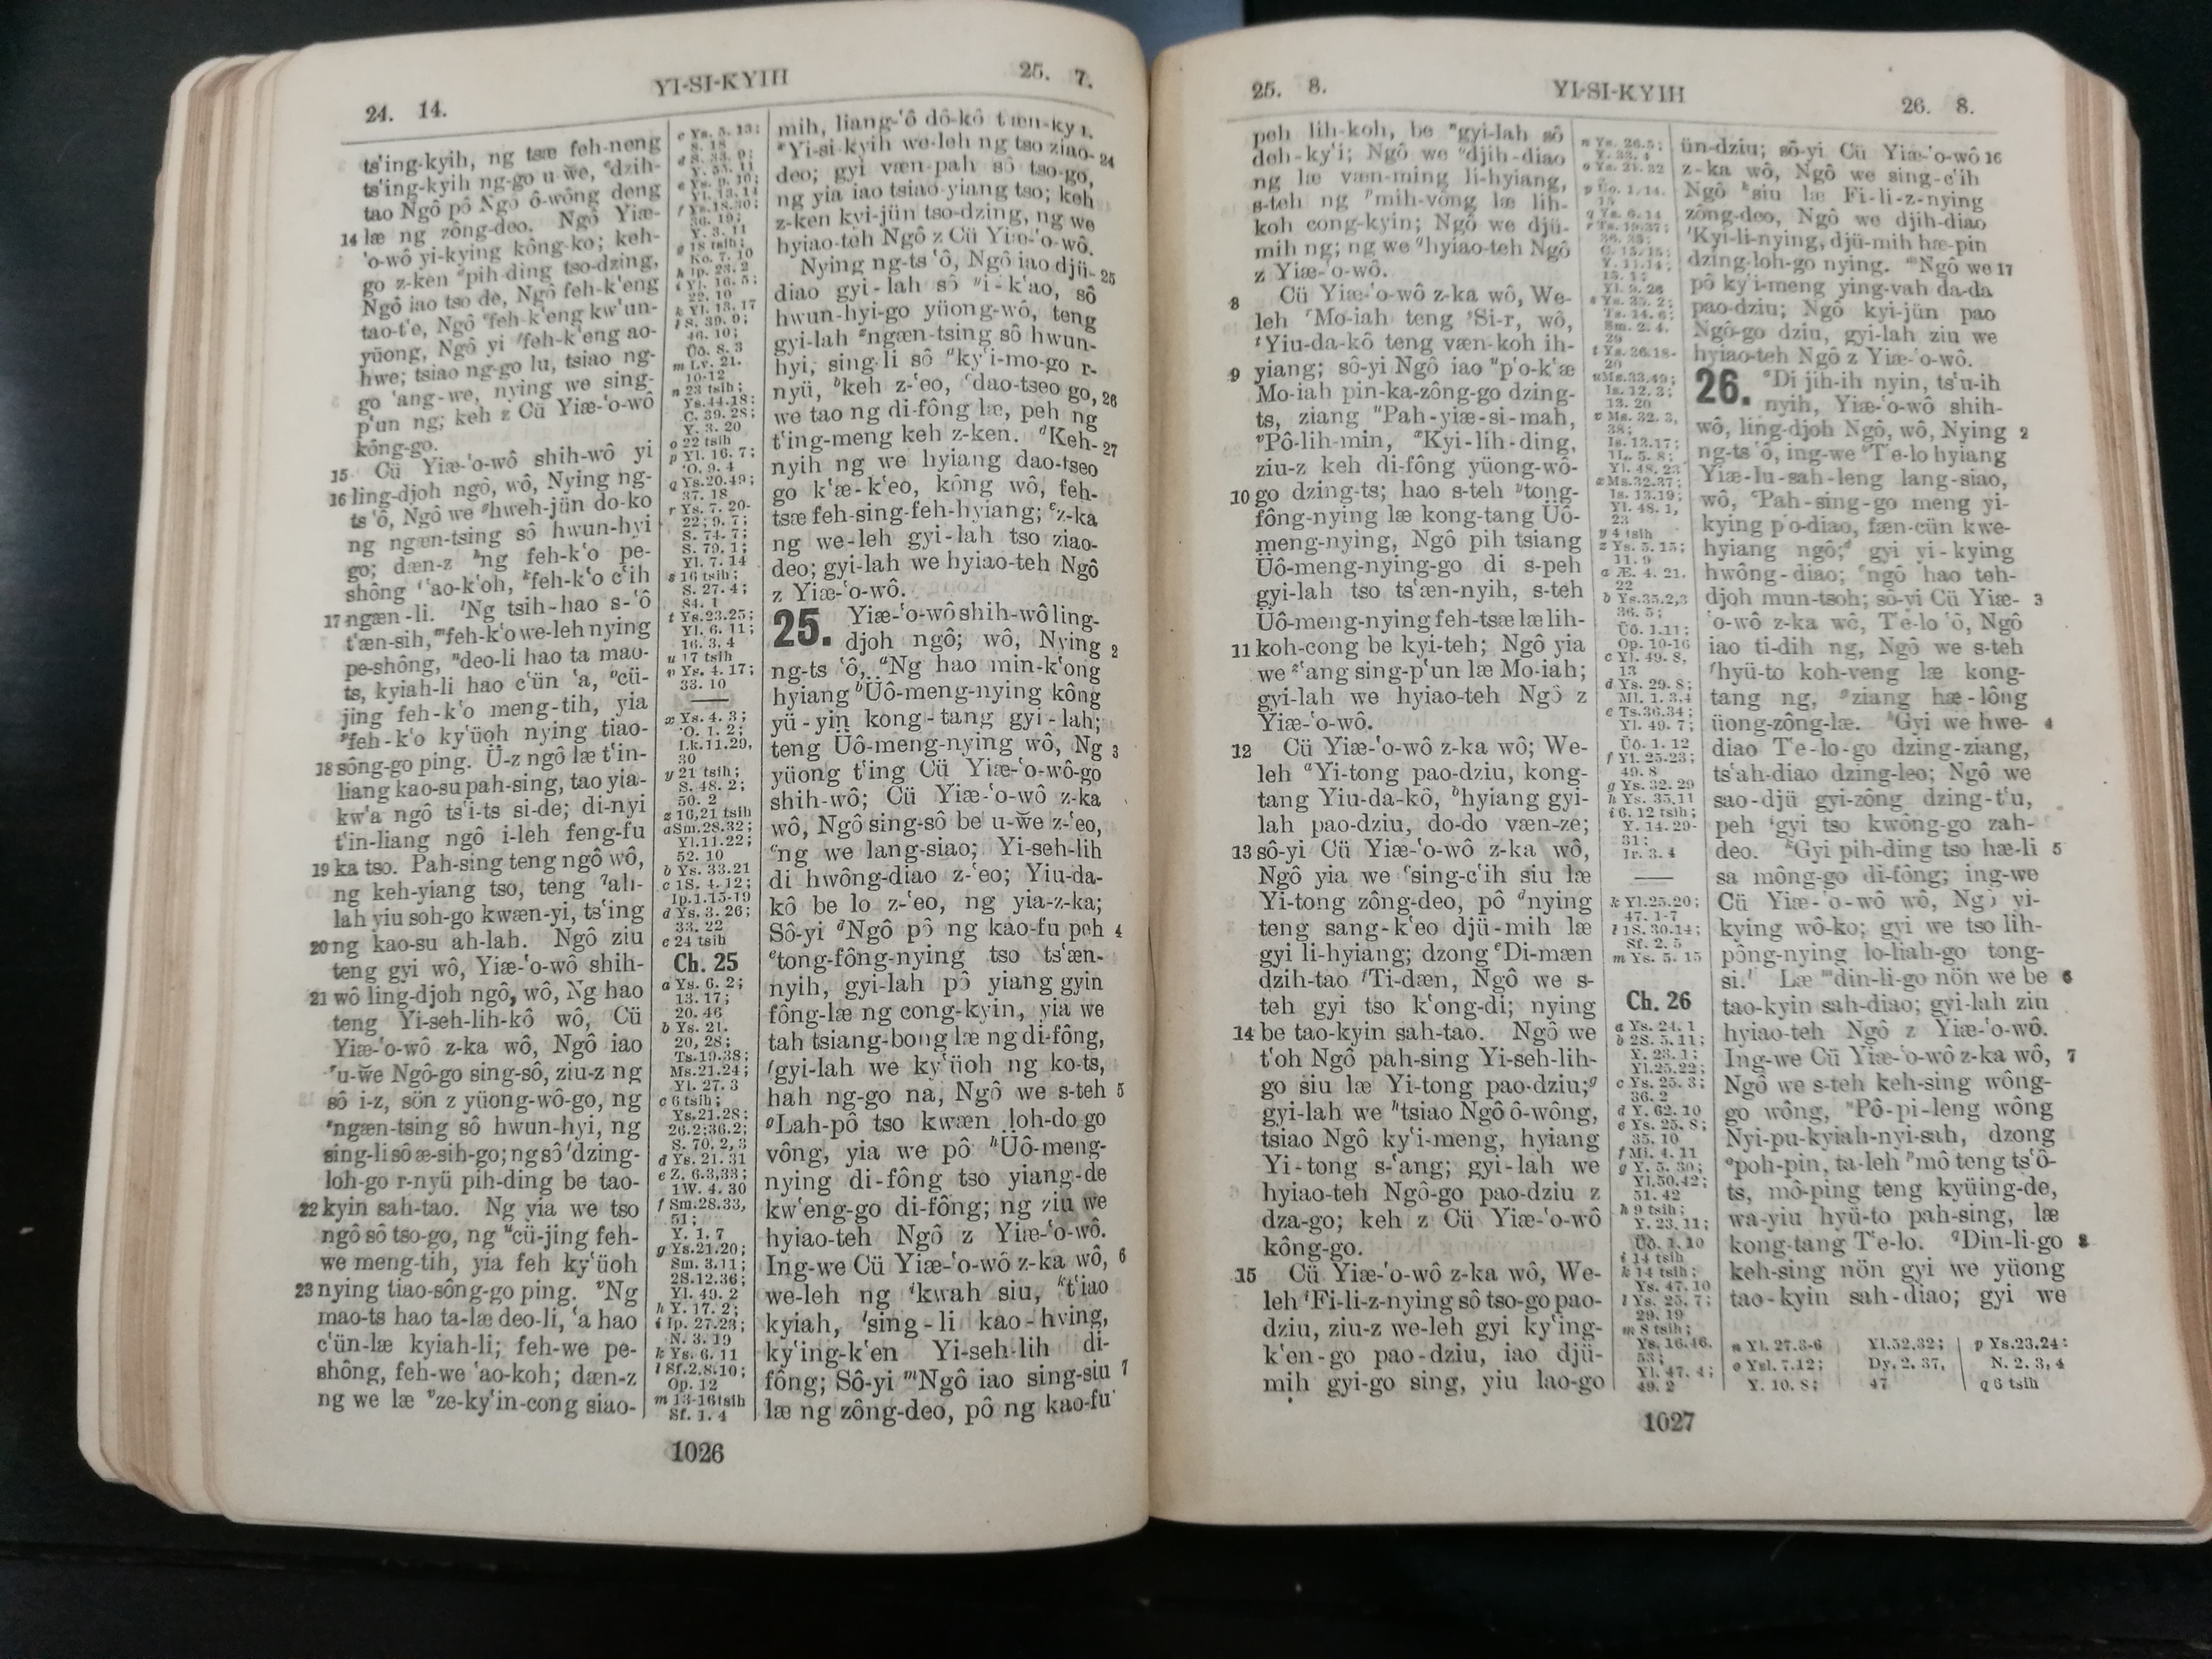 24. 14.
YI-SI-KYIH
25. 7.
ts'ing-kyih, ng tsæ feh-neng
ts'ing-kyih ng-go u-we, dzih-
tao Ngô pô Ngô ô-wông deng
14 læ ng zông-deo. Ngô Yiæ-
'o-wô yi-kying kông-ko; keh-
go z-ken pih-ding tso-dzing,
Ngô iao tso de, Ngô feh-k'eng
tao-t'e, Ngô feh-k'eng kw'un-
yüong, Ngô yi feh-k'eng ao-
hwe; tsiao ng-go lu, tsiao ng-
go 'ang-we, nying we sing-
p'un ng; keh z Cü Yiæ-'o-wô
kông-go.
15 Cü Yiæ-'o-wô shih-wô yi
16 ling-djoh ngô, wô, Nying ng-
ts 'ô, Ngô we hweh-jün do-ko
ng ngæn-tsing sô hwun-hyi
go; dæn-z ng feh-k'o pe-
shông 'ao-k'oh, feh-k'o c'ih
17 ngæn-li. Ng tsih-hao s-'ô
t'æn-sih, feh-k'o we-leh nying
pe-shông, deo-li hao ta mao-
ts, kyiah-li hao c'ün 'a, cü-
jing feh-k'o meng-tih, yia
feh-k'o ky'üoh nying tiao-
18 sông-go ping. Ü-z ngô læ t'in-
liang kao-su pah-sing, tao yia-
kw'a ngô ts'i-ts si-de; di-nyi
t'in-liang ngô i-leh feng-fu
19 ka tso. Pah-sing teng ngô wô,
ng keh-yiang tso, teng ah-
lah yiu soh-go kwæn-yi, ts'ing
20 ng kao-su ah-lah. Ngô ziu
teng gyi wô, Yiæ-'o-wô shih-
21 wô ling-djoh ngô, wô, Ng hao
teng Yi-seh-lih-kô wô, Cü
Yiæ-'o-wô z-ka wô, Ngô iao
u-we Ngô-go sing-sô, ziu-z ng
sô i-z, sön z yüong-wô-go, ng
ngæn-tsing sô hwun-hyi, ng
sing-li sô æ-sih-go; ng sô dzing-
loh-go r-nyü pih-ding be tao-
22 kyin sah-tao. Ng yia we tso
ngô sô tso-go, ng cü-jing feh-
we meng-tih, yia feh ky'üoh
23 nying tiao-sông-go ping. Ng
mao-ts hao ta-læ deo-li, 'a hao
c'ün-læ kyiah-li; feh-we pe-
shông, feh-we 'ao-koh; dæn-z
ng we læ ze-ky'in-cong siao-
c Ys. 5. 13;
m Lv. 21.
10-12
n 23 tsih;
Ys.44.18;
C. 39. 28;
Y. 3. 20
o 22 tsih
p Yl. 16. 7;
'O. 9. 4
q Ys.20.49;
37. 18
r Ys. 7. 20-
22; 9. 7;
S. 74. 7;
S. 79. 1;
Yl. 7. 14
s 16 tsih;
S. 27. 4;
84. 1
t Ys.23.25;
Yl. 6. 11;
16. 3, 4
u 17 tsih
v Ys. 4. 17;
33. 10
x Ys. 4. 3;
'O. 1. 2;
Lk.11.29,
30
y 21 tsih;
S. 48. 2;
50. 2
z 16,21 tsih
a Sm.28.32;
Yl.11.22;
52. 10
b Ys. 33.21
c 1S. 4. 12;
Ip.1.15-19
d Ys. 3. 26;
33. 22
e 24 tsih
Ch. 25
a Ys. 6. 2;
13. 17;
20. 46
b Ys. 21.
20, 28;
Ts.19.38;
Ms.21.24;
Yl. 27. 3
c 6 tsih;
Ys.21.28;
26.2;36.2;
S. 70. 2, 3
d Ys. 21. 31
e Z. 6.3,33;
1W. 4. 30
f Sm.28.33,
51;
Y. 1. 7
g Ys.21.20;
Sm. 3.11;
2S.12.36;
Yl. 49. 2
h Y. 17. 2;
i Ip. 27.23;
N. 3. 19
k Ys. 6. 11
l Sf.2.8,10;
Op. 12
m 13-16 tsih
Sf. 1. 4
mih, liang-'ô dô-kô t'æn-ky'i.
Yi-si-kyih we-leh ng tso ziao- 24
deo; gyi væn-pah sô tso-go,
ng yia iao tsiao-yiang tso; keh
z-ken kyi-jün tso-dzing, ng we
hyiao-teh Ngô z Cü Yiæ-'o-wô.
Nying ng-ts 'ô, Ngô iao djü- 25
diao gyi-lah sô i-k'ao, sô
hwun-hyi-go yüong-wô, teng
gyi-lah ngæn-tsing sô hwun-
hyi, sing-li sô ky'i-mo-go r-
nyü, keh z-'eo, dao-tseo go, 26
we tao ng di-fông læ, peh ng
t'ing-meng keh z-ken. Keh- 27
nyih ng we hyiang dao-tseo
go k'æ-k'eo, kông wô, feh-
tsæ feh-sing-feh-hyiang; z-ka
ng we-leh gyi-lah tso ziao-
deo; gyi-lah we hyiao-teh Ngô
z Yiæ-'o-wô.
25. Yiæ-'o-wô shih-wô ling-
djoh ngô; wô, Nying 2
ng-ts 'ô, Ng hao min-k'ong
hyiang Üô-meng-nying kông
yü-yin kong-tang gyi-lah;
teng Üô-meng-nying wô, Ng 3
yüong t'ing Cü Yiæ-'o-wô-go
shih-wô; Cü Yiæ-'o-wô z-ka
wô, Ngô sing-sô be u-we z-'eo,
ng we lang-siao; Yi-seh-lih
di hwông-diao z-'eo; Yiu-da-
kô be lo z-'eo, ng yia-z-ka;
Sô-yi Ngô pô ng kao-fu peh 4
tong-fông-nying tso ts'æn-
nyih, gyi-lah pô yiang gyin
fông-læ ng cong-kyin, yia we
tah tsiang-bong læ ng di-fông,
gyi-lah we ky'üoh ng ko-ts,
hah ng-go na, Ngô we s-teh 5
Lah-pô tso kwæn loh-do go
vông, yia we pô Üô-meng-
nying di-fông tso yiang-de
kw'eng-go di-fông; ng ziu we
hyiao-teh Ngô z Yiæ-'o-wô.
Ing-we Cü Yiæ-'o-wô z-ka wô, 6
we-leh ng kwah siu, t'iao
kyiah, sing-li kao-hying,
ky'ing-k'en Yi-seh-lih di-
fông; Sô-yi Ngô iao sing-siu 7
læ ng zông-deo, pô ng kao-fu
1026
25. 8.
YI-SI-KYIH
26. 8.
peh lih-koh, be gyi-lah sô
deh-ky'i; Ngô we djih-diao
ng læ væn-ming li-hyiang,
s-teh ng mih-vông læ lih-
koh cong-kyin; Ngô we djü-
mih ng; ng we hyiao-teh Ngô
z Yiæ-'o-wô.
8 Cü Yiæ-'o-wô z-ka wô, We-
leh Mo-iah teng Si-r, wô,
Yiu-da-kô teng væn-koh ih-
9 yiang; sô-yi Ngô iao p'o-k'æ
Mo-iah pin-ka-zông-go dzing-
ts, ziang Pah-yiæ-si-mah,
Pô-lih-min, Kyi-lih-ding,
ziu-z keh di-fông yüong-wô-
10 go dzing-ts; hao s-teh tong-
fông-nying læ kong-tang Üô-
meng-nying, Ngô pih tsiang
Üô-meng-nying-go di s-peh
gyi-lah tso ts'æn-nyih, s-teh
Üô-meng-nying feh-tsæ læ lih-
11 koh-cong be kyi-teh; Ngô yia
we 'ang sing-p'un læ Mo-iah;
gyi-lah we hyiao-teh Ngô z
Yiæ-'o-wô.
12 Cü Yiæ-'o-wô z-ka wô; We-
leh Yi-tong pao-dziu, kong-
tang Yiu-da-kô, hyiang gyi-
lah pao-dziu, do-do væn-ze;
13 sô-yi Cü Yiæ-'o-wô z-ka wô,
Ngô yia we sing-c'ih siu læ
Yi-tong zông-deo, pô nying
teng sang-k'eo djü-mih læ
gyi li-hyiang; dzong Di-mæn
dzih-tao Ti-dæn, Ngô we s-
teh gyi tso k'ong-di; nying
14 be tao-kyin sah-tao. Ngô we
t'oh Ngô pah-sing Yi-seh-lih-
go siu læ Yi-tong pao-dziu;
gyi-lah we tsiao Ngô ô-wông,
tsiao Ngô ky'i-meng, hyiang
Yi-tong s-'ang; gyi-lah we
hyiao-teh Ngô-go pao-dziu z
dza-go; keh z Cü Yiæ-'o-wô
kông-go.
15 Cü Yiæ-'o-wô z-ka wô, We-
leh Fi-li-z-nying sô tso-go pao-
dziu, ziu-z we-leh gyi ky'ing-
k'en-go pao-dziu, iao djü-
mih gyi-go sing, yiu lao-go
b Ys.35.2,3
36. 5;
Üô. 1.11;
Op. 10-16
c Yl. 49. 8,
13
d Ys. 29. 8;
Ml. 1. 3,4
e Ts.36.34;
Yl. 49. 7;
Üô. 1. 12
f Yl. 25.23;
49. 8
g Ys. 32. 29
h Ys. 35.11
i 6. 12 tsih;
Y. 14. 29-
31;
Ir. 3. 4
k Yl.25.20;
47. 1-7
l 1S. 30.14;
Sf. 2. 5
m Ys. 5. 15
Ch. 26
a Ys. 24. 1
b 2S. 5.11;
Y. 23. 1;
Yl.25.22;
c Ys. 25. 3;
36. 2
d Y. 62. 10
e Ys. 25. 8;
35. 10
f Mi. 4. 11
g Y. 5. 30;
Yl.50.42;
51. 42
h 9 tsih;
Y. 23. 11;
Üô. 1. 10
i 14 tsih
k 14 tsih;
Ys. 47. 10
l Ys. 25. 7;
29. 19
m 8 tsih;
Ys. 16.46,
53;
Yl. 47. 4;
49. 2
ün-dziu; sô-yi Cü Yiæ-'o-wô 16
z-ka wô, Ngô we sing-c'ih
Ngô siu læ Fi-li-z-nying
zông-deo, Ngô we djih-diao
Kyi-li-nying, djü-mih hæ-pin
dzing-loh-go nying. Ngô we 17
pô ky'i-meng ying-vah da-da
pao-dziu; Ngô kyi-jün pao
Ngô-go dziu, gyi-lah ziu we
hyiao-teh Ngô z Yiæ-'o-wô.
26. Di jih-ih nyin, ts'u-ih
nyih, Yiæ-'o-wô shih-
wô, ling-djoh Ngô, wô, Nying 2
ng-ts 'ô, ing-we T'e-lo hyiang
Yiæ-lu-sah-leng lang-siao,
wô, Pah-sing-go meng yi-
kying p'o-diao, fæn-cün kwe-
hyiang ngô; gyi yi-kying
hwông-diao; ngô hao teh-
djoh mun-tsoh; sô-yi Cü Yiæ- 3
'o-wô z-ka wô, T'e-lo 'ô, Ngô
iao ti-dih ng, Ngô we s-teh
hyü-to koh-veng læ kong-
tang ng, ziang hæ-lông
üong-zông-læ. Gyi we hwe- 4
diao T'e-lo-go dzing-ziang,
ts'ah-diao dzing-leo; Ngô we
sao-djü gyi-zông dzing-t'u,
peh gyi tso kwông-go zah-
deo. Gyi pih-ding tso hæ-li 5
sa mông-go di-fông; ing-we
Cü Yiæ-'o-wô wô, Ngô yi-
kying wô-ko; gyi we tso lih-
pông-nying lo-liah-go tong-
si. Læ din-li-go nön we be 6
tao-kyin sah-diao; gyi-lah ziu
hyiao-teh Ngô z Yiæ-'o-wô.
Ing-we Cü Yiæ-'o-wô z-ka wô, 7
Ngô we s-teh keh-sing wông-
go wông, Pô-pi-leng wông
Nyi-pu-kyiah-nyi-sah, dzong
poh-pin, ta-leh mô teng ts'ô-
ts, mô-ping teng kyüing-de,
wa-yiu hyü-to pah-sing, læ
kong-tang T'e-lo. Din-li-go 8
keh-sing nön gyi we yüong
tao-kyin sah-diao; gyi we
n Yl. 27.3-6
o Ysl. 7.12;
Y. 10. 8;
Yl.52.32;
Dy. 2. 37,
47
p Ys.23.24:
N. 2. 3, 4
q 6 tsih
1027